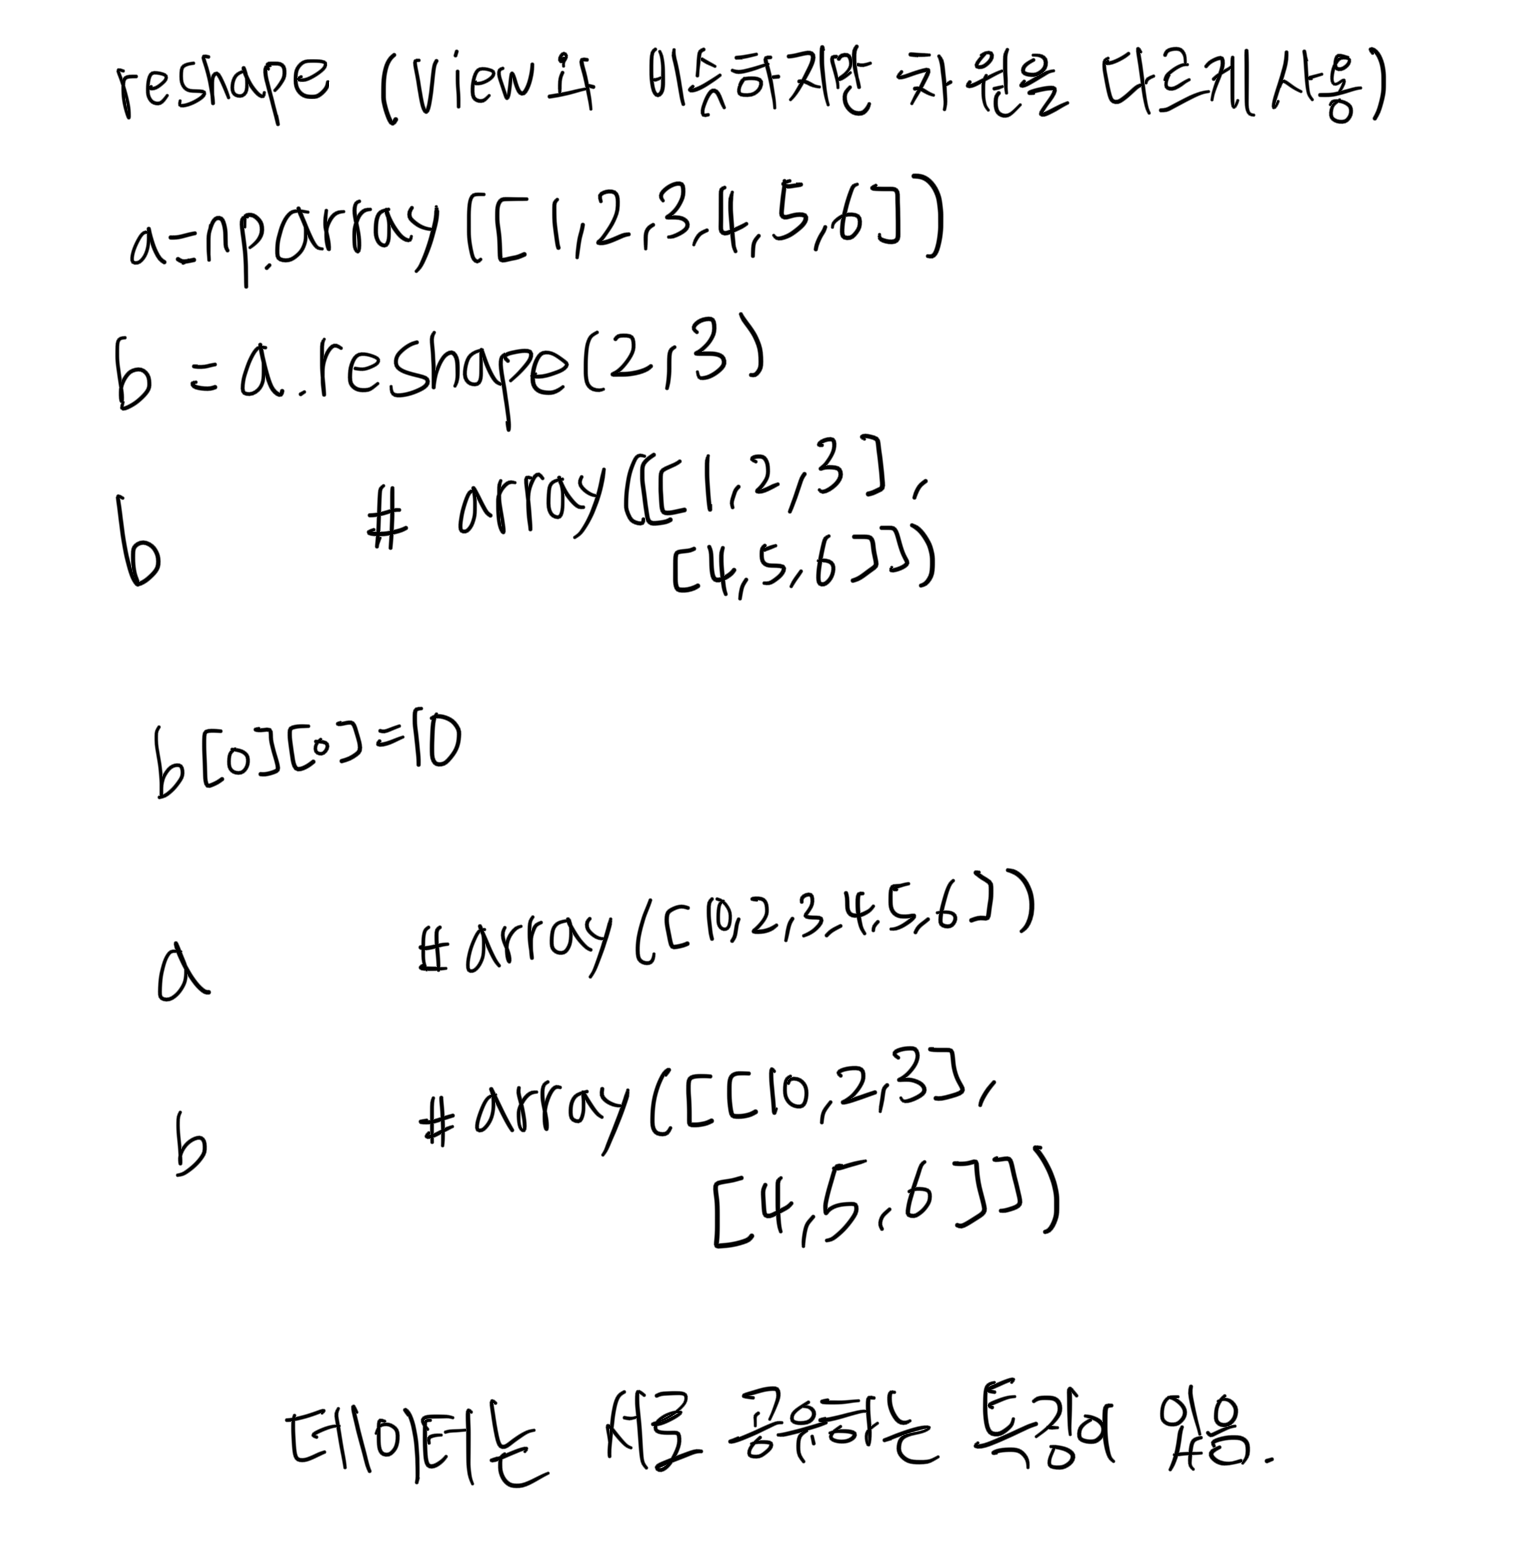 reshape (view와 비슷하지만 차원을 다르게 사용)
a=np.array([1,2,3,4,5,6])
b = a.reshape(2,3)
b # array([[1,2,3],
[4,5,6]])
b[0][0]=10
a #array([10,2,3,4,5,6])
b #array([[10,2,3],
[4,5,6]])
데이터는 서로 공유하는 특징이 있음.